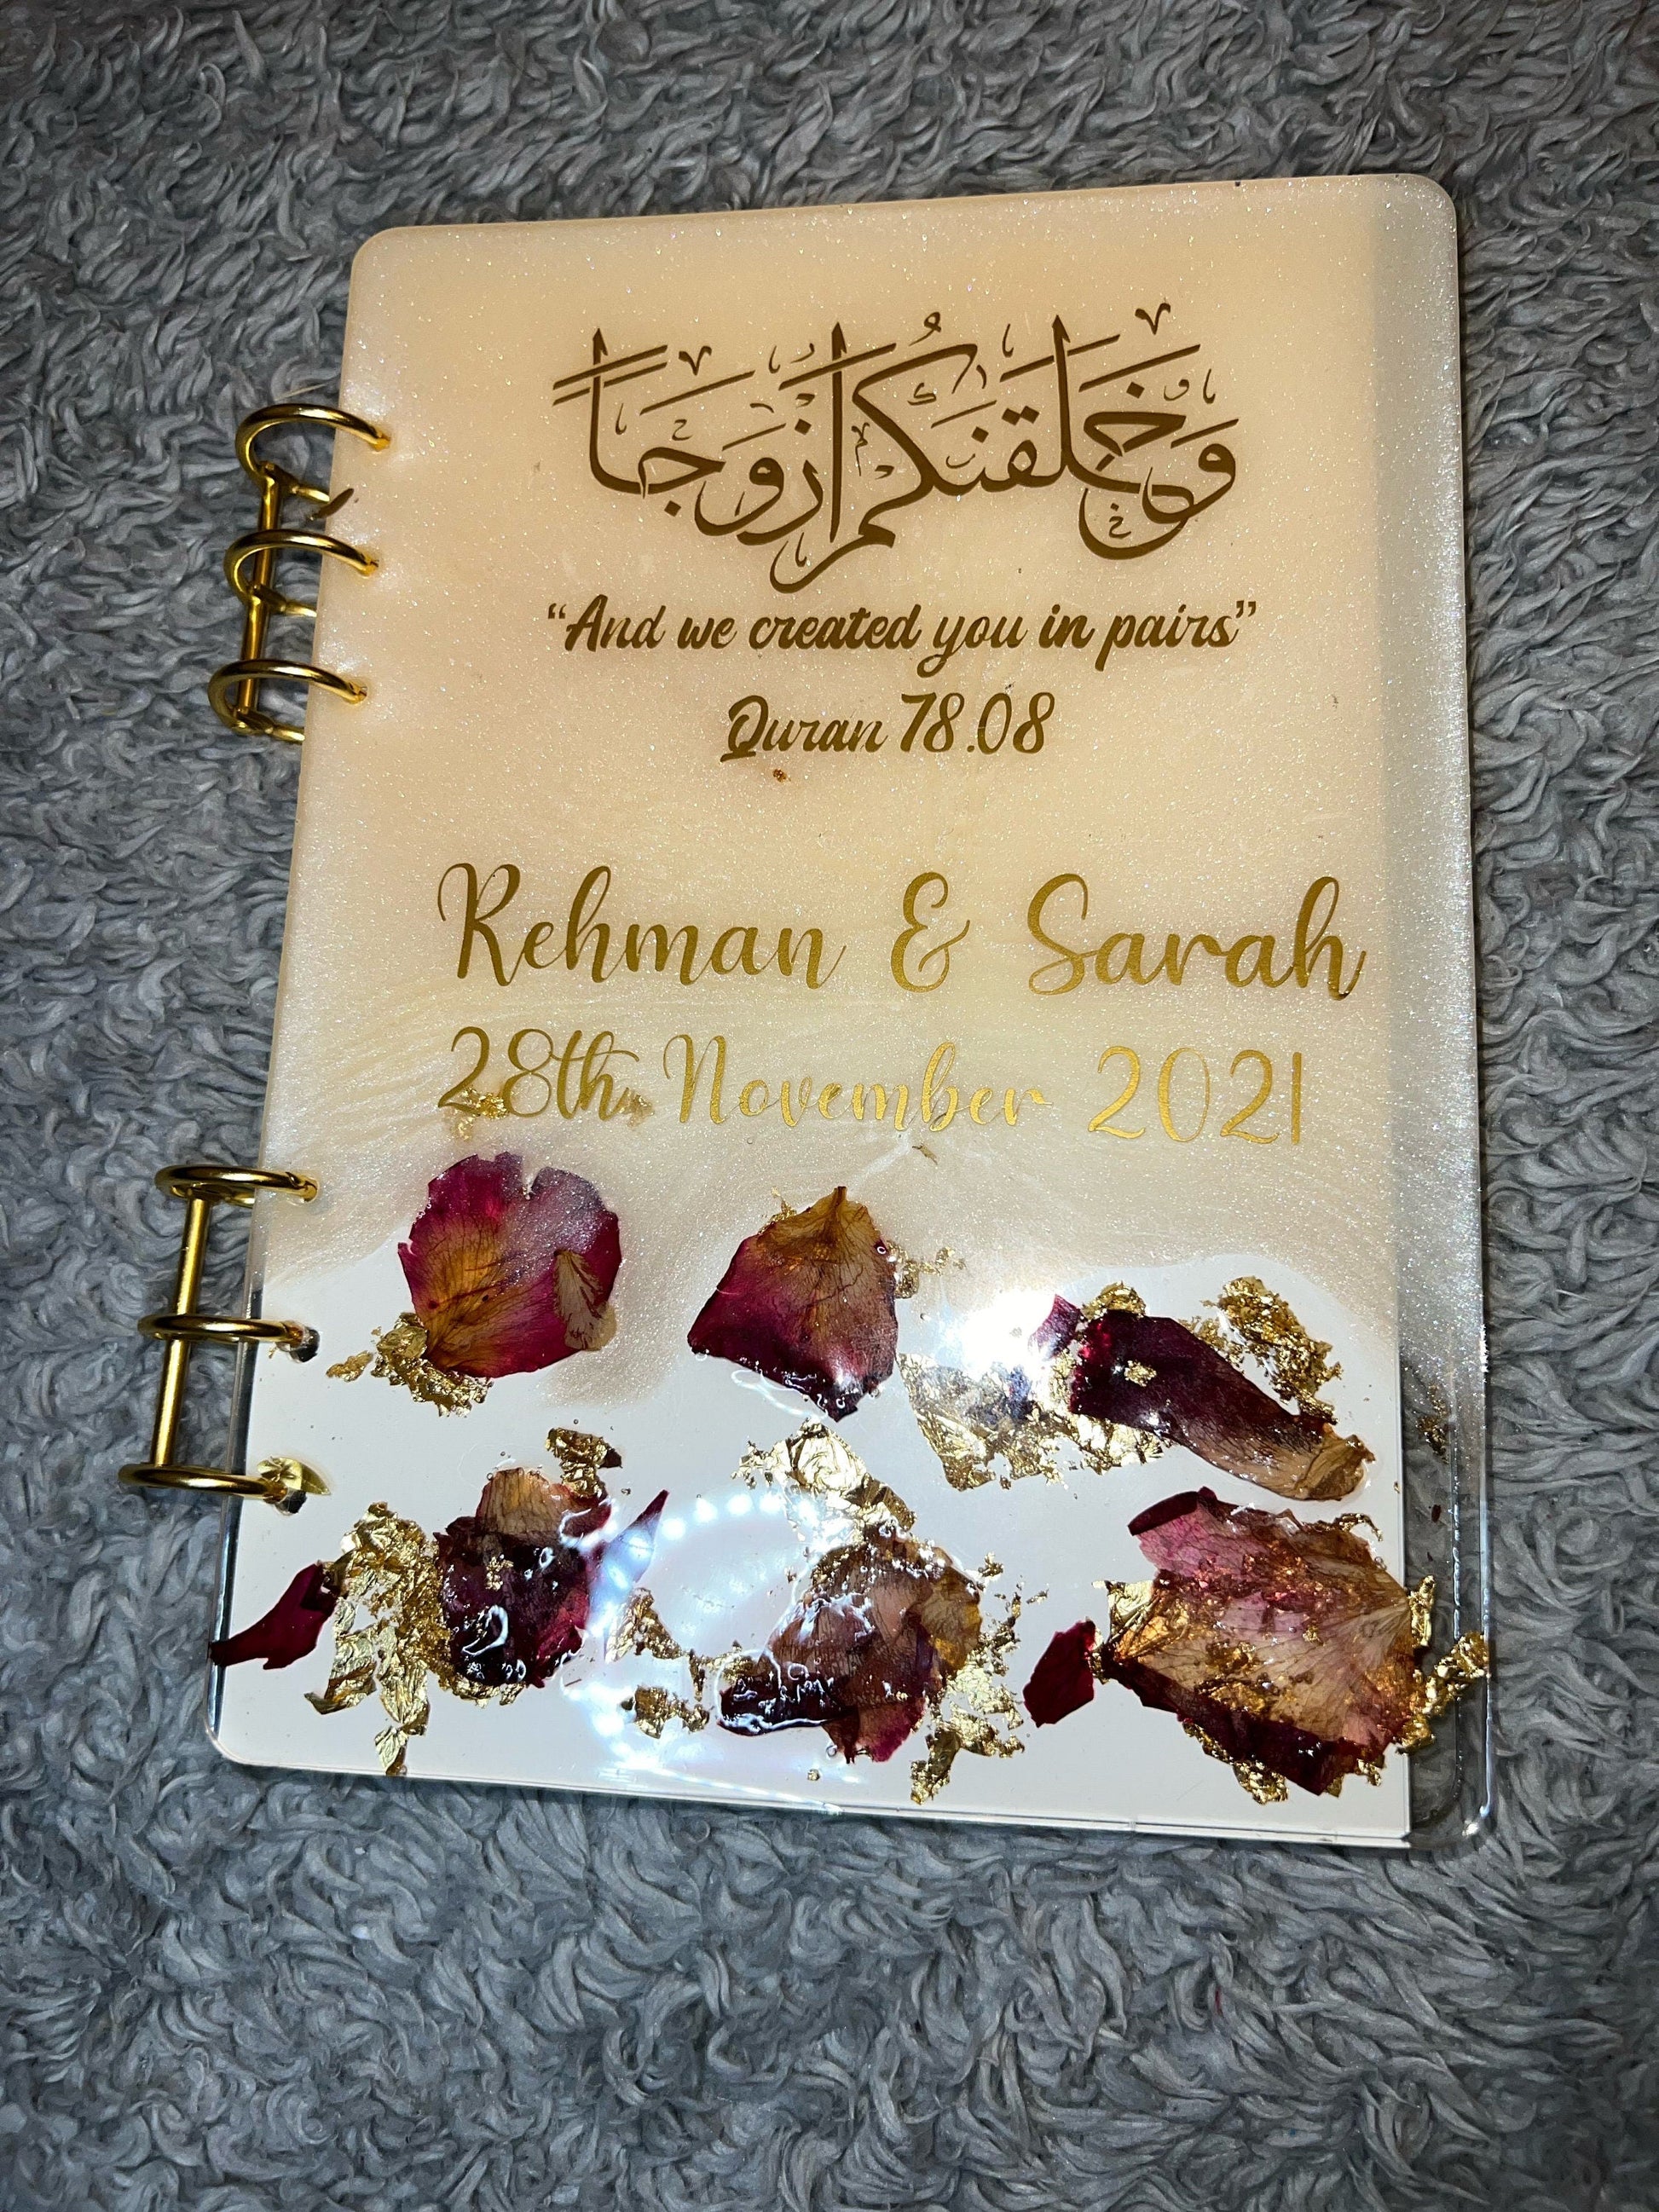 وَخَلَقْنَكُمْ أَزْوَجًا
“And we created you in pairs”
Quran 78.08
Rehman & Sarah
28th November 2021